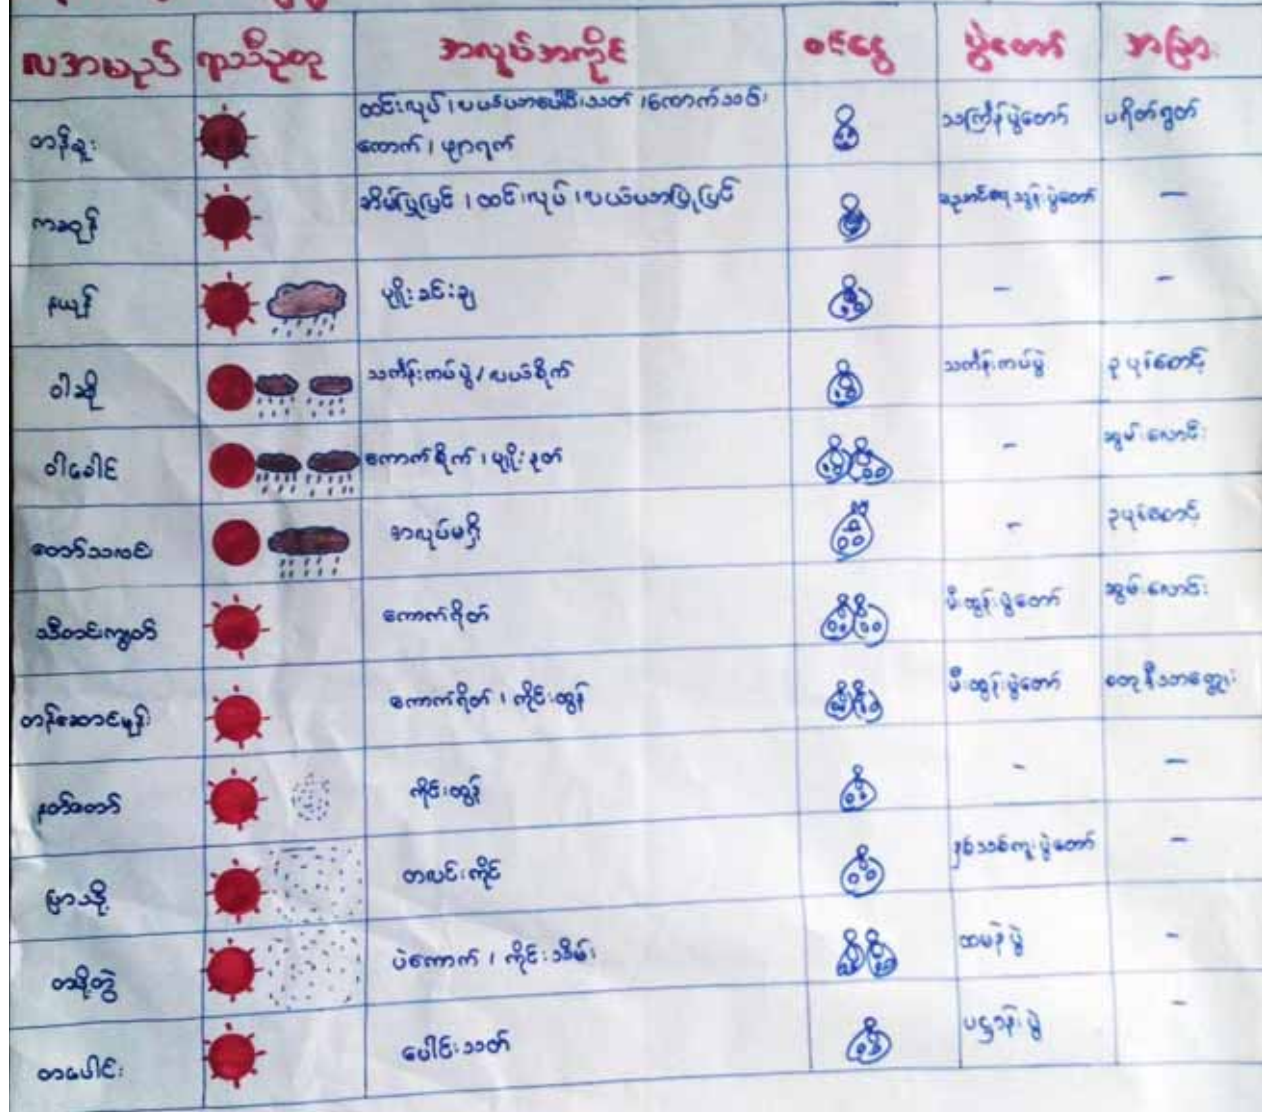 လအမည် ရာသီဥတု အလုပ်အကိုင် ဝင်ငွေ ပွဲတော် အခြား
တန်ခူး ထင်းလုပ်၊ ကောက်သင်း သင်္ကြန်ပွဲတော် ပရိတ်ရွတ်
ကောက်၊ ဖျာရက်
ကဆုန် အိမ်ပြုပြင်၊ ထင်းလုပ်၊ ညောင်ရေသွန်းပွဲတော် –
နယုန် မျိုးခင်းချ – –
ဝါဆို သင်္ကန်းကပ်ပွဲ/ ကပ်ပွဲ ဥပုန်စောင့်
ဝါခေါင် ကောက်စိုက်၊ မျိုးနုတ် – ဆွမ်းလောင်း
တော်သလင်း အလုပ်မရှိ – ဥပုန်စောင့်
သီတင်းကျွတ် ကောက်ရိတ် မီးထွန်းပွဲတော် ဆွမ်းလောင်း
တန်ဆောင်မုန်း ကောက်ရိတ်၊ ကိုင်းထွန် မီးထွန်းပွဲတော်
နတ်တော် ကိုင်းထွန် – –
ပြာသို တလင်းကိုင် နှစ်သစ်ကူးပွဲတော် –
တပို့တွဲ ပဲကောက်၊ ကိုင်းသိမ်း ထမနဲပွဲ –
တပေါင်း ပေါင်းသတ် ပဋ္ဌာန်းပွဲ –